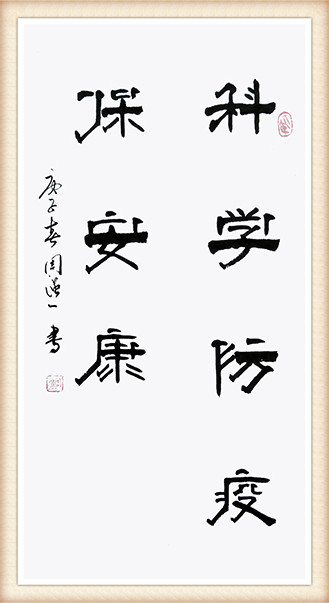 科学防疫
保安康
庚子春周道一书